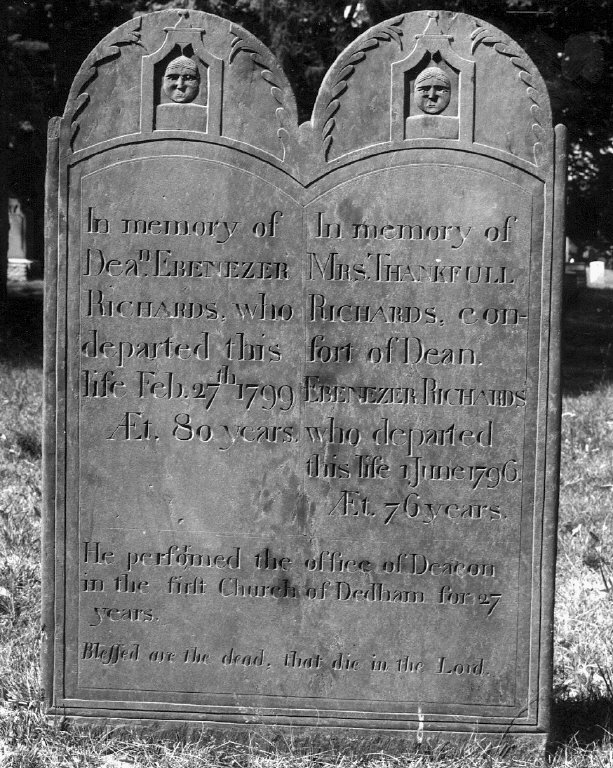 In memory of
Deaⁿ. EBENEZER
RICHARDS, who
departed this
life Feb. 27th 1799
Æt. 80 years.
In memory of
MRS. THANKFULL
RICHARDS, con-
ſort of Dean.
EBENEZER RICHARDS
who departed
this life 1 June 1796.
Æt. 76 years.
He perfoımed the office of Deacon
in the firſt Church of Dedham for 27
years.
Bleſſed are the dead, that die in the Lord.